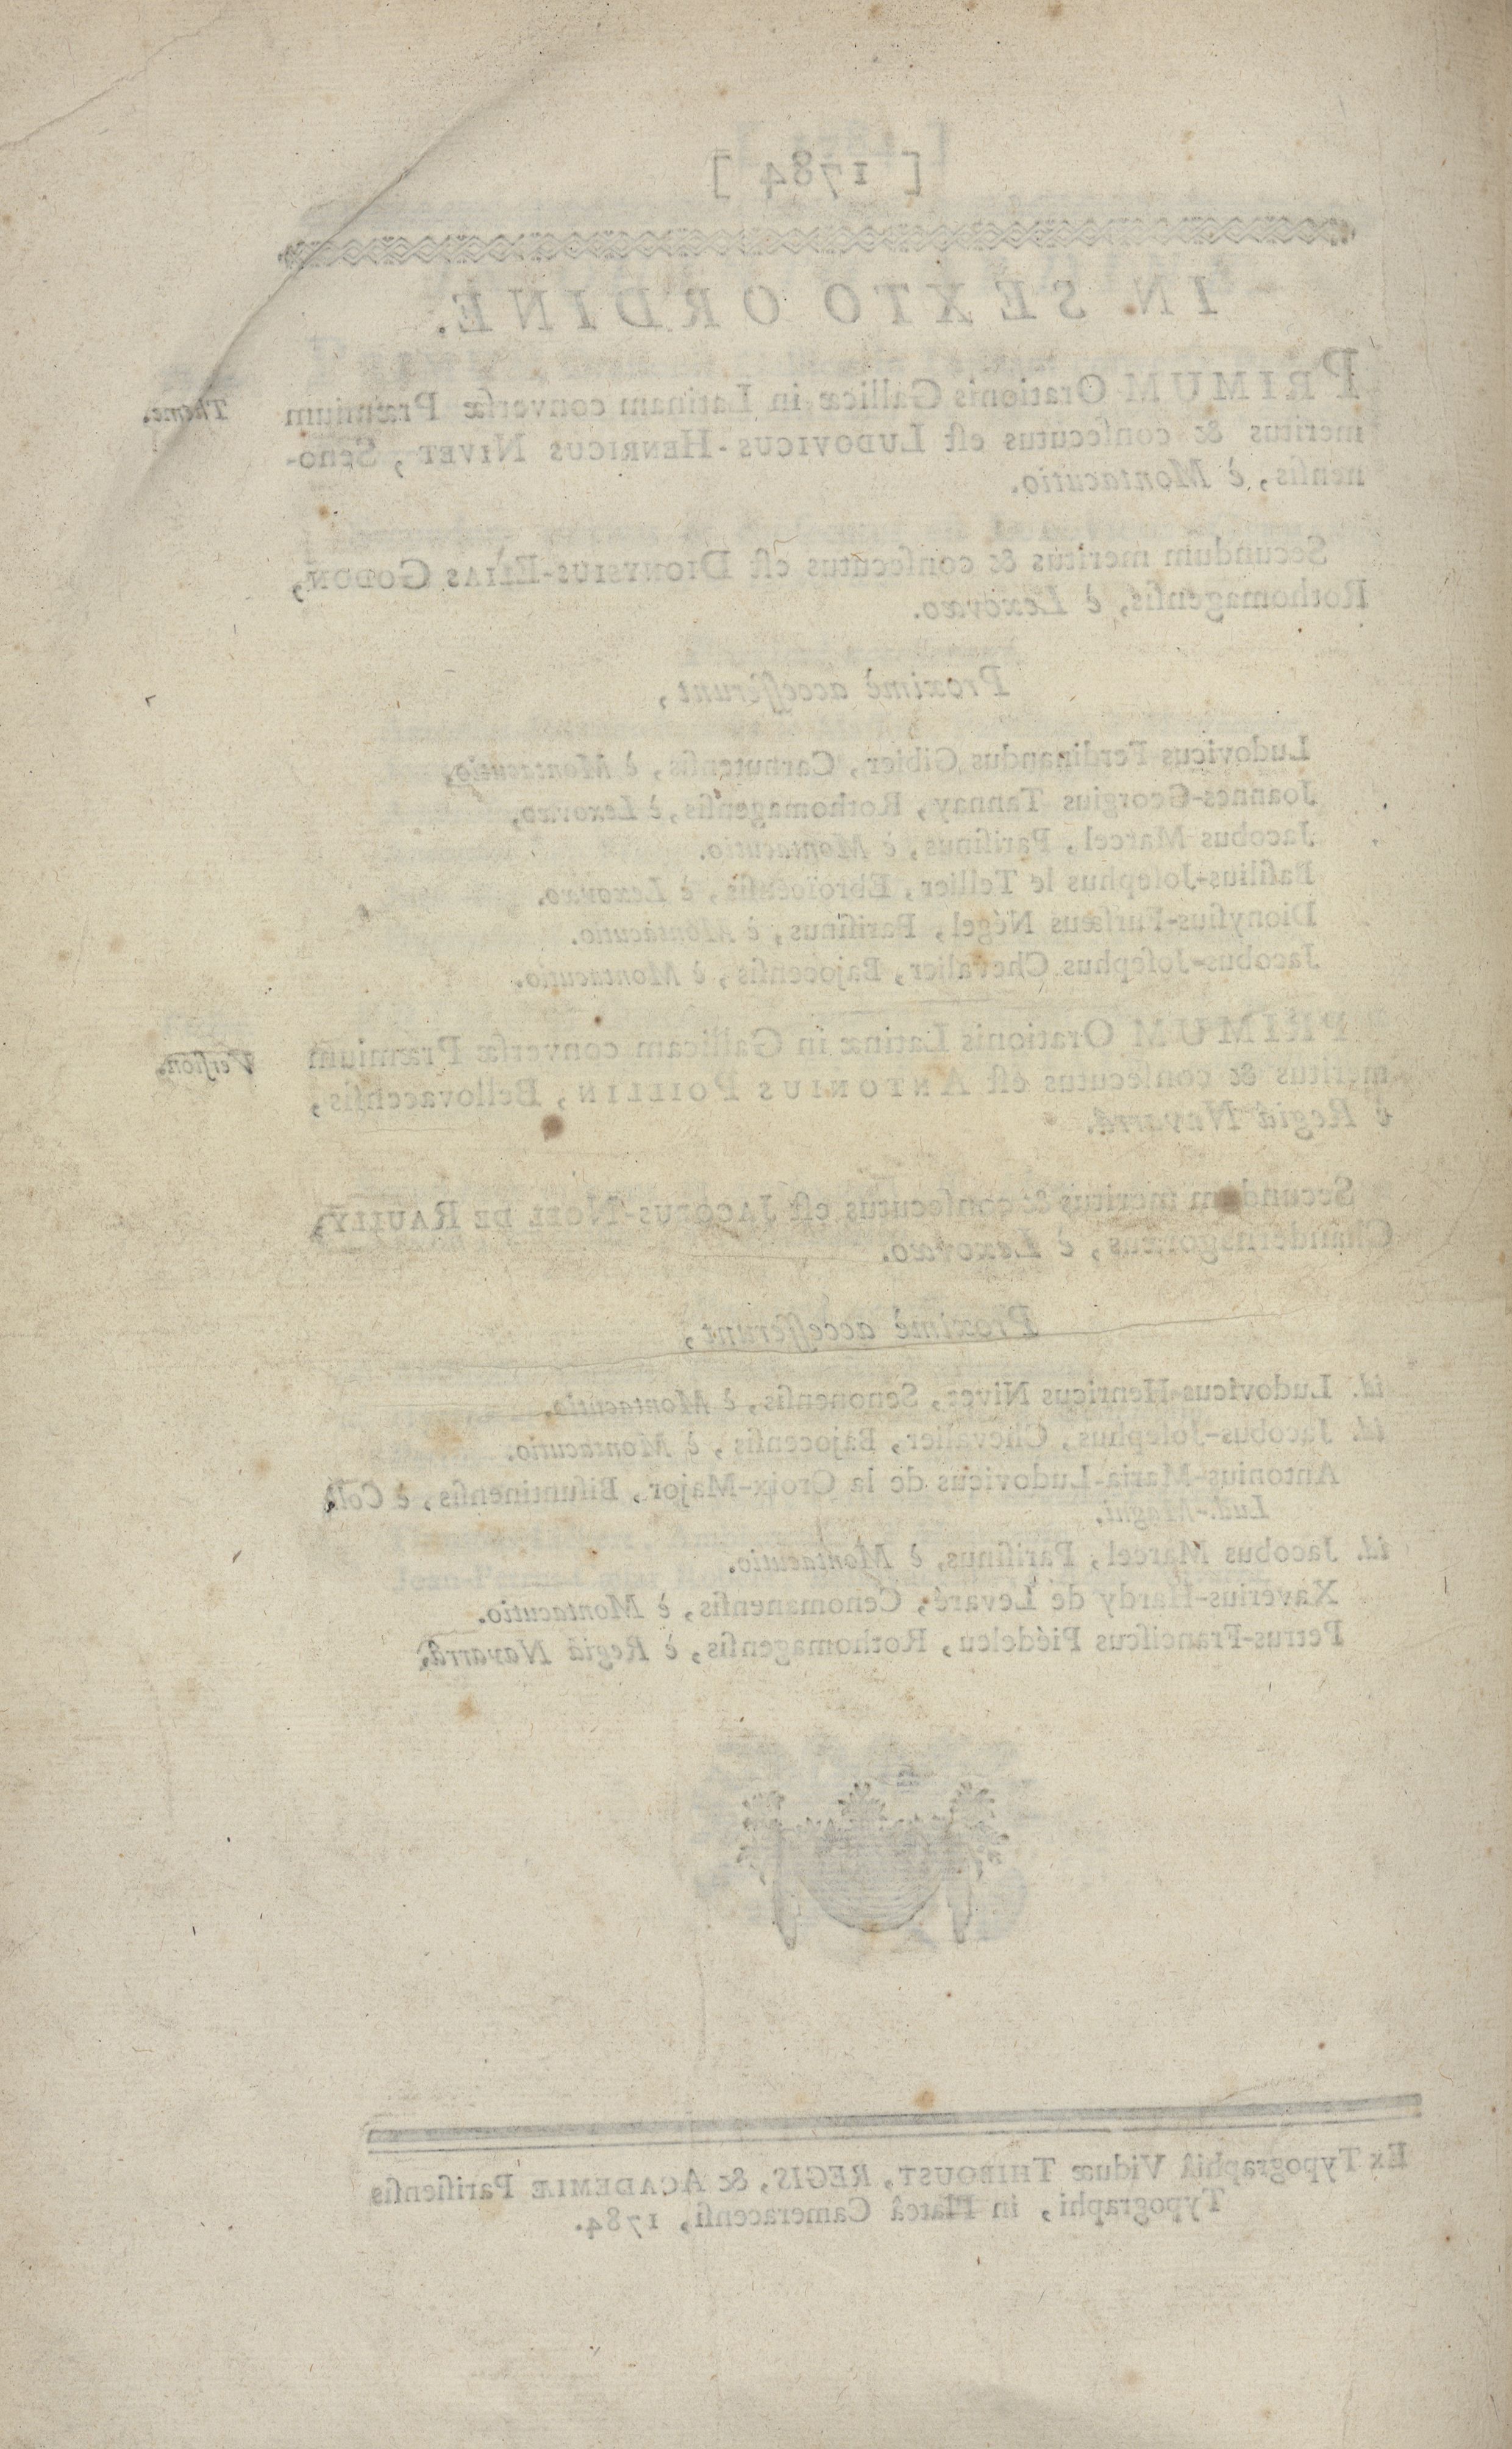 [ 1784 ]
IN SEXTO ORDINE.
PRIMUM Orationis Gallicæ in Latinam converſæ Præmium
Thême.
meritus & conſecutus eſt LUDOVICUS-HENRICUS NIVET, Seno-
nenſis, è Montacutio.
Secundum meritus & conſecutus eſt DIONYSIUS-ELIAS GODON,
Rothomagenſis, è Lexovæo.
Proximè acceſſerunt,
Ludovicus-Ferdinandus Gibier, Carnutenſis, è Montacutio.
Joannes-Georgius Tannay, Rothomagenſis, è Lexovæo.
Jacobus Marcel, Pariſinus, è Montacutio.
Baſilius-Joſephus le Tellier, Ebroïcenſis, è Lexovæo.
Dionyſius-Furſæus Négel, Pariſinus, è Montacutio.
Jacobus-Joſephus Chevalier, Bajocenſis, è Montacutio.
PRIMUM Orationis Latinæ in Gallicam converſæ Præmium
Verſion.
meritus & conſecutus eſt ANTONIUS POILLIN, Bellovacenſis,
è Regiâ Navarrâ.
Secundum meritus & conſecutus eſt JACOBUS-NOEL DE RAULLY,
Chandernagoræus, è Lexovæo.
Proximè acceſſerunt,
id. Ludovicus-Henricus Nivet, Senonenſis, è Montacutio.
id. Jacobus-Joſephus, Chevalier, Bajocenſis, è Montacutio.
Antonius-Maria-Ludovicus de la Croix-Major, Biſuntinenſis, è Coll.
Lud.-Magni.
id. Jacobus Marcel, Pariſinus, è Montacutio.
Xaverius-Hardy de Levaré, Cenomanenſis, è Montacutio.
Petrus-Franciſcus Piédeleu, Rothomagenſis, è Regiâ Navarrâ.
Ex Typographiâ Viduæ THIBOUST, REGIS, & ACADEMIÆ Pariſienſis
Typographi, in Plateâ Cameracenſi, 1784.